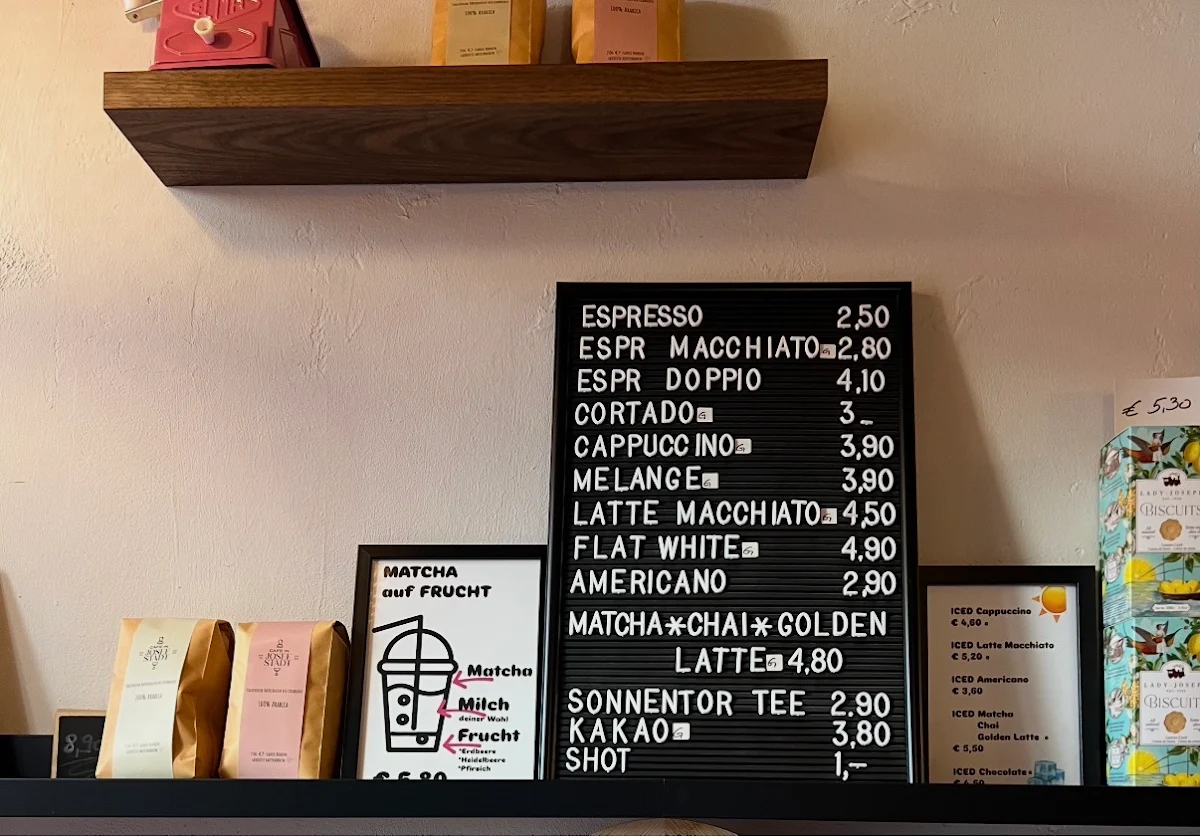 ELMA
100% ARABICA
100% ARABICA
ESPRESSO 2,50
ESPR MACCHIATO G 2,80
ESPR DOPPIO 4,10
CORTADO G 3_
CAPPUCCINO G 3,90
MELANGE G 3,90
LATTE MACCHIATO G 4,50
FLAT WHITE G 4,90
AMERICANO 2,90
MATCHA*CHAI*GOLDEN
LATTE G 4,80
SONNENTOR TEE 2.90
KAKAO G 3,80
SHOT 1,–
MATCHA
auf FRUCHT
Matcha
Milch
deiner Wahl
Frucht
*Erdbeere
*Heidelbeere
*Pfirsich
€ 5,80
JOSEF
STADT
100% ARABICA
JOSEF
STADT
100% ARABICA
8,90
ICED Cappuccino
€ 4,60
ICED Latte Macchiato
€ 5,20
ICED Americano
€ 3,60
ICED Matcha
Chai
Golden Latte
€ 5,50
ICED Chocolate
€ 5,30
LADY JOSEP
BISCUITS
LADY JOSEP
BISCUIT